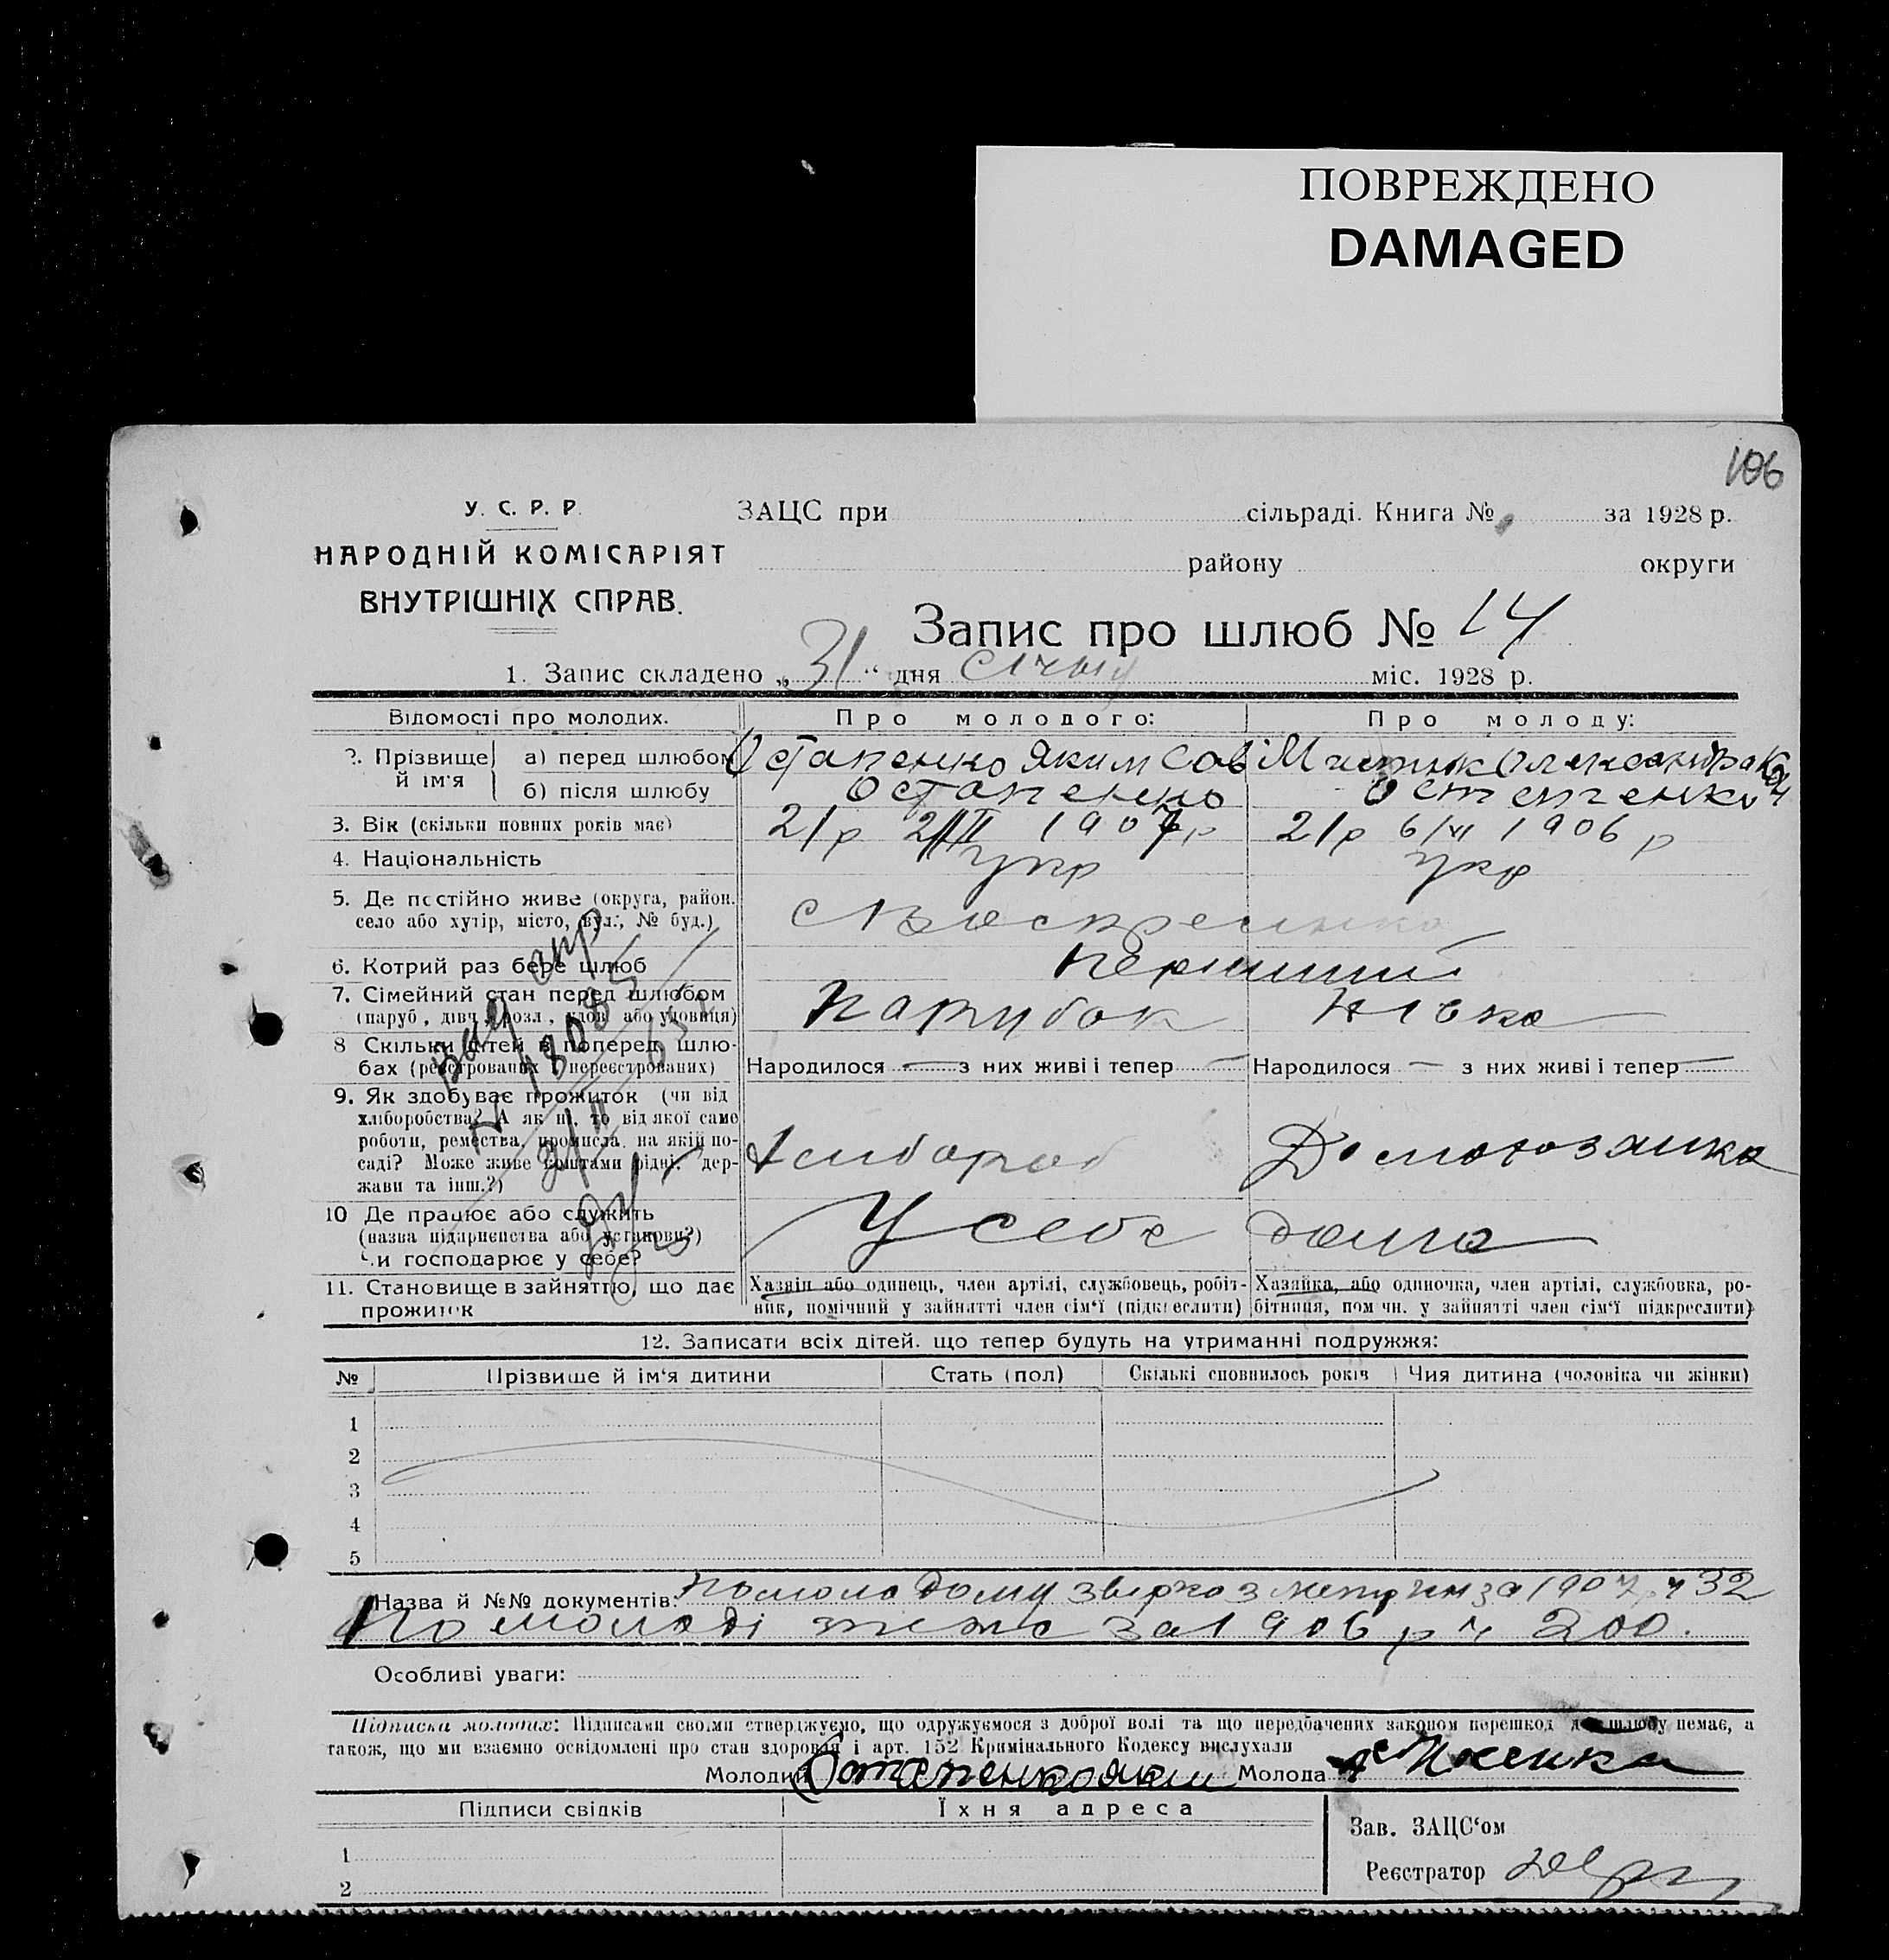 ПОВРЕЖДЕНО
DAMAGED
106
У. С. Р. Р.
НАРОДНІЙ КОМІСАРІЯТ
ВНУТРІШНІХ СПРАВ.
ЗАЦС при сільраді. Книга № за 1928 р.
району округи
Запис про шлюб № 14
1. Запис складено „31“ дня січня міс. 1928 р.
Відомості про молодих. Про молодого: Про молоду:
2. Прізвище й ім'я
а) перед шлюбом Остапенко Яким Сав Олександра
б) після шлюбу Остапенко Остапенко
3. Вік (скільки повних років має) 21 р 2/II 1907 р 21 р 6/VI 1906 р
4. Національність укр укр
5. Де постійно живе (округа, район.
село або хутір, місто, вул., № буд.)
с Воскресенка
6. Котрий раз бере шлюб перший
7. Сімейний стан перед шлюбом
(паруб., дівч., розл., удов. або удовиця)
парубок дівка
8 Скільки дітей в поперед. шлю-
бах (реєстрованих і нереєстрованих)
Народилося — з них живі і тепер — Народилося — з них живі і тепер —
9. Як здобуває прожиток (чи від
хліборобства? А як ні, то від якої саме
роботи, ремества, промисла, на якій по-
саді? Може живе коштами рідні, дер-
жави та інш.?)
Хлібороб Домогозяйка
10 Де працює або служить
(назва підприємства або установи?)
Чи господарює у себе?
У себе дома
11. Становище в зайнятію, що дає
прожиток
Хазяїн або одинець, член артілі, службовець, робіт-
ник, помічний у зайнятті член сім'ї (підкреслити)
Хазяйка, або одиночка, член артілі, службовка, ро-
бітниця, помічн. у зайнятті член сім'ї підкреслити)
12. Записати всіх дітей. що тепер будуть на утриманні подружжя:
№ Прізвище й ім'я дитини Стать (пол) Скількі сповнилось років Чия дитина (чоловіка чи жінки)
1
2
3
4
5
Назва й №№ документів: По молодому з метрики за 1907 р ч 32
По молоді теж за 1906 р ч 200.
Особливі уваги:
Підписка молодих: Підписами своїми стверджуємо, що одружуємося з доброї волі та що передбачених законом перешкод до шлюбу немає, а
також, що ми взаємно освідомлені про стан здоровля і арт. 152 Кримінального Кодексу вислухали
Молодий Остапенко Яким Молода
Підписи свідків Їхня адреса
1
2
Зав. ЗАЦС'ом
Реєстратор